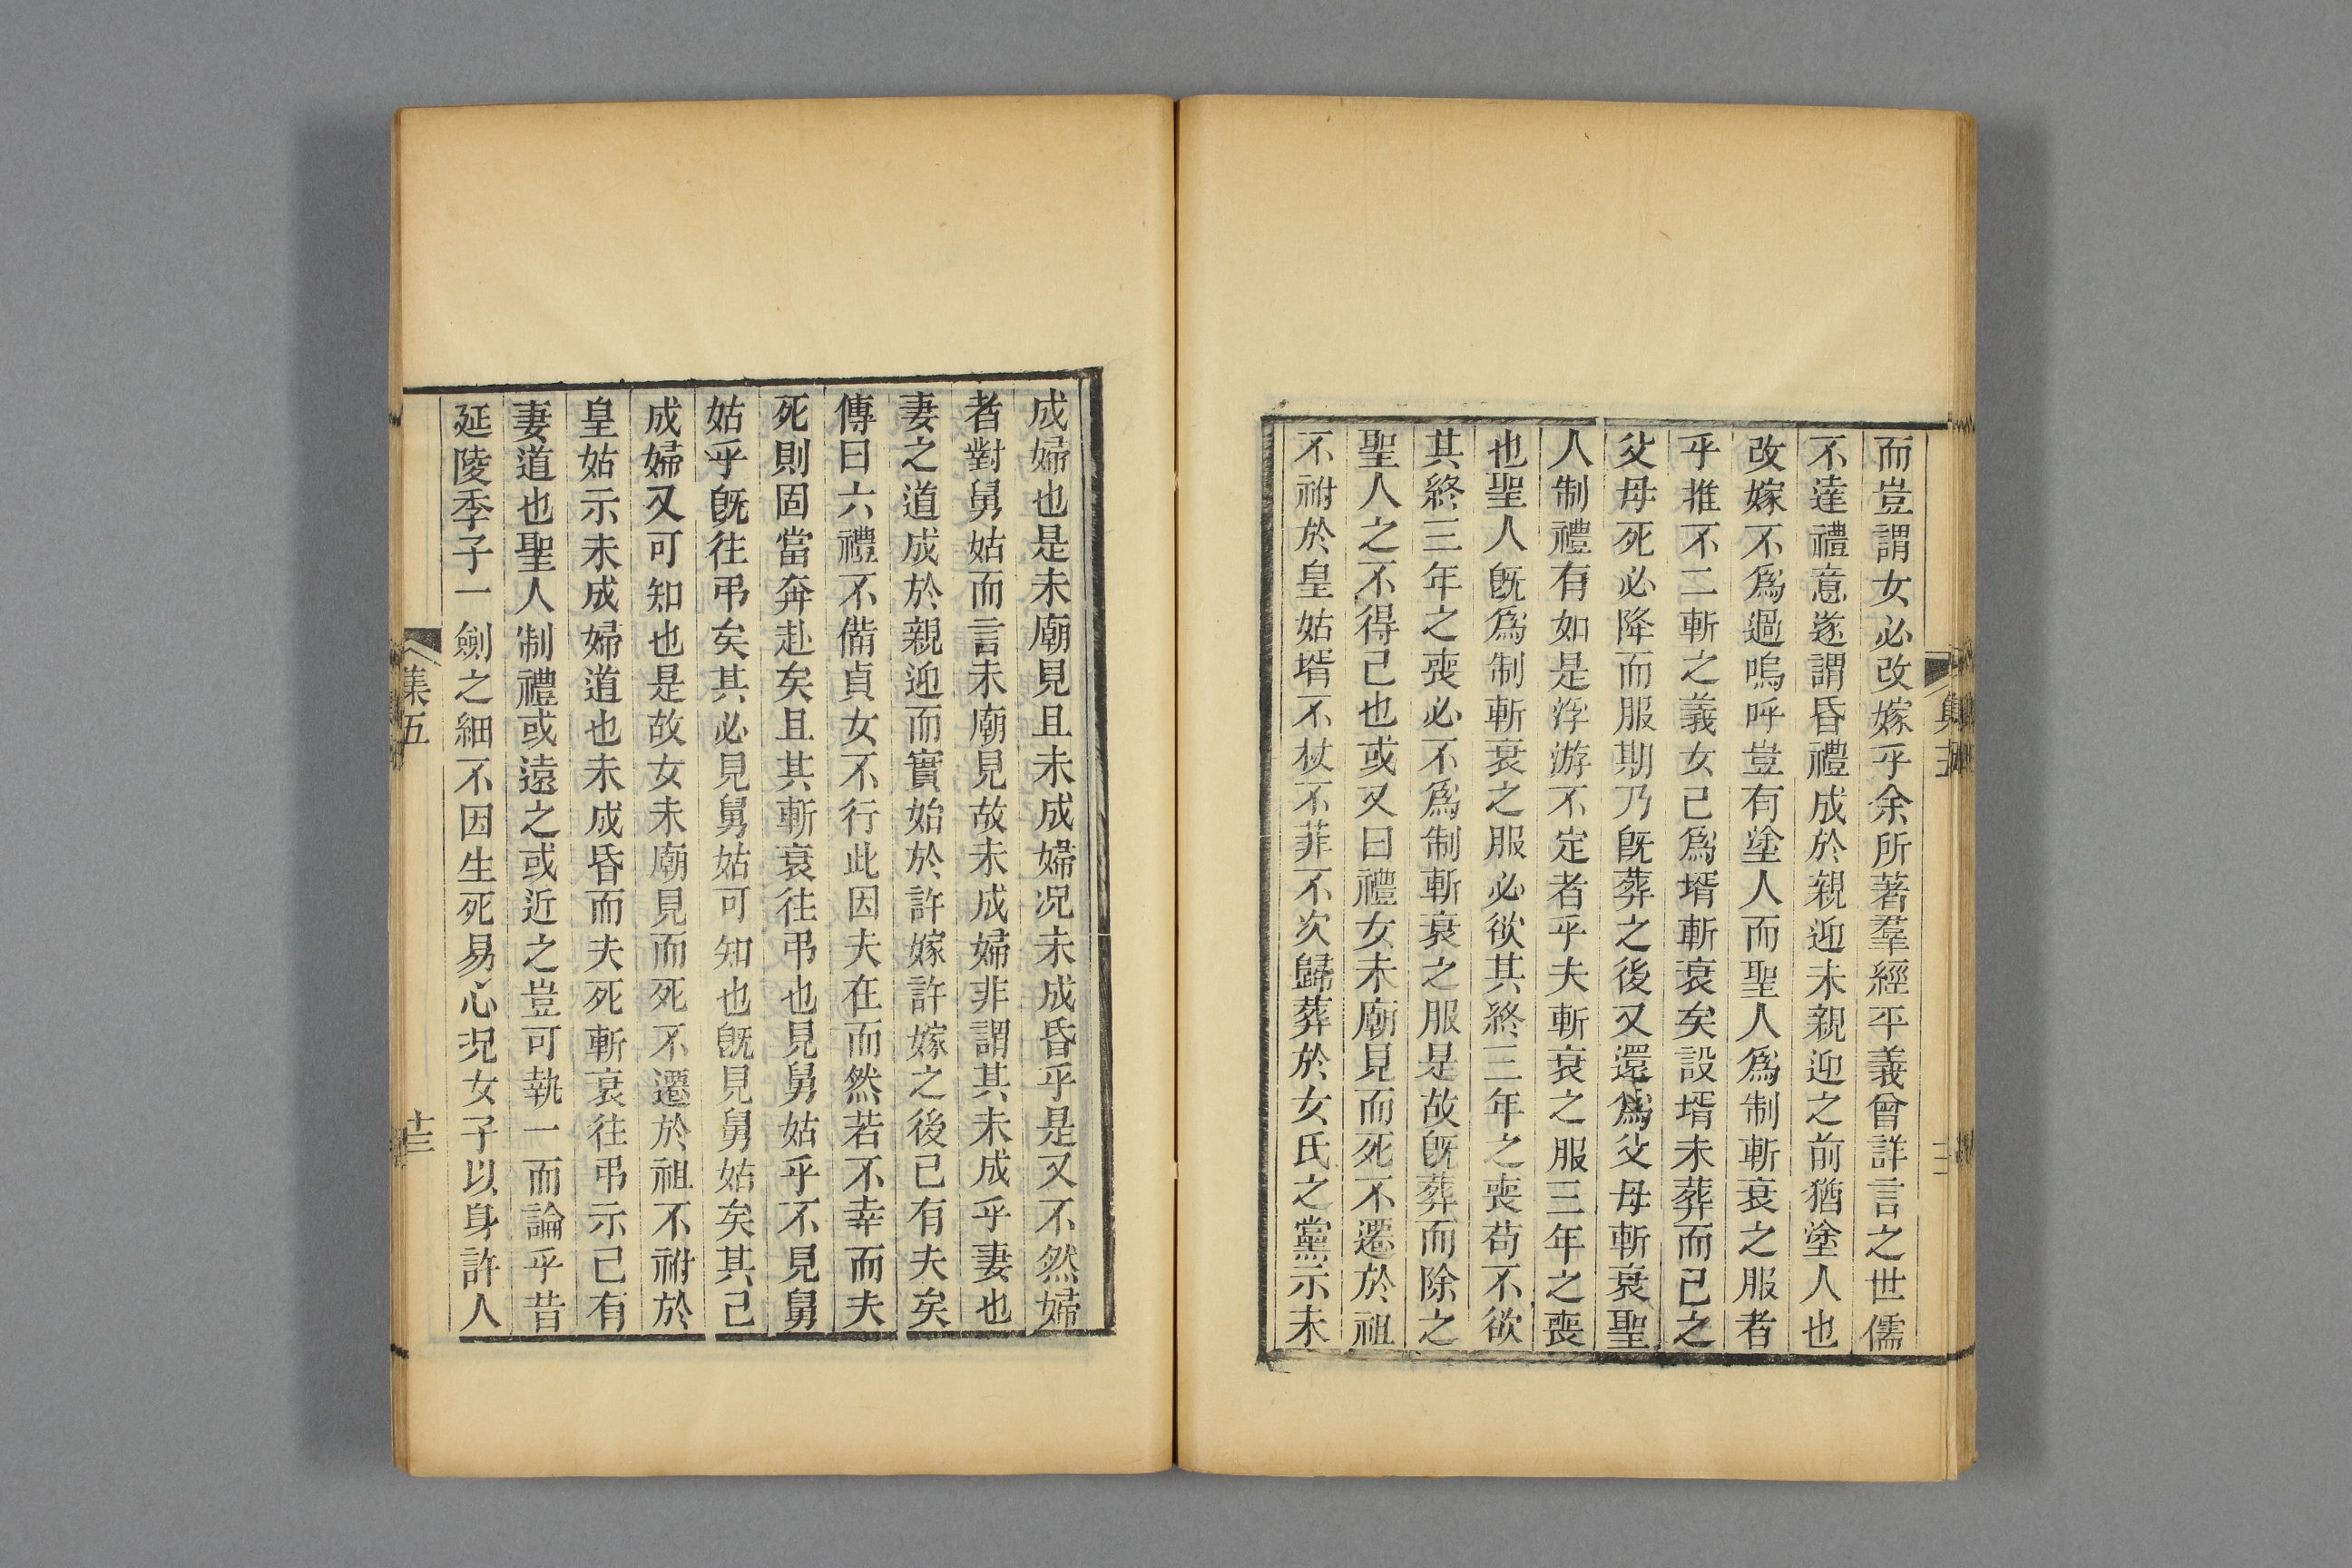 而豈謂女必改嫁乎余所著羣經平義曾詳言之世儒
不達禮意遂謂昏禮成於親迎未親迎之前猶塗人也
改嫁不爲過嗚呼豈有塗人而聖人爲制斬衰之服者
乎推不二斬之義女已爲壻斬衰矣設壻未葬而已之
父母死必降而服期乃旣葬之後又還爲父母斬衰聖
人制禮有如是浮游不定者乎夫斬衰之服三年之喪
也聖人旣爲制斬衰之服必欲其終三年之喪苟不欲
其終三年之喪必不爲制斬衰之服是故旣葬而除之
聖人之不得已也或又曰禮女未廟見而死不遷於祖
不祔於皇姑壻不杖不菲不次歸葬於女氏之黨示未
成婦也是未廟見且未成婦況未成昏乎是又不然婦
者對舅姑而言未廟見故未成婦非謂其未成乎妻也
妻之道成於親迎而實始於許嫁許嫁之後已有夫矣
傳曰六禮不備貞女不行此因夫在而然若不幸而夫
死則固當奔赴矣且其斬衰往弔也見舅姑乎不見舅
姑乎旣往弔矣其必見舅姑可知也旣見舅姑矣其已
成婦又可知也是故女未廟見而死不遷於祖不祔於
皇姑示未成婦道也未成昏而夫死斬衰往弔示已有
妻道也聖人制禮或遠之或近之豈可執一而論乎昔
延陵季子一劍之細不因生死易心況女子以身許人
集五
十三